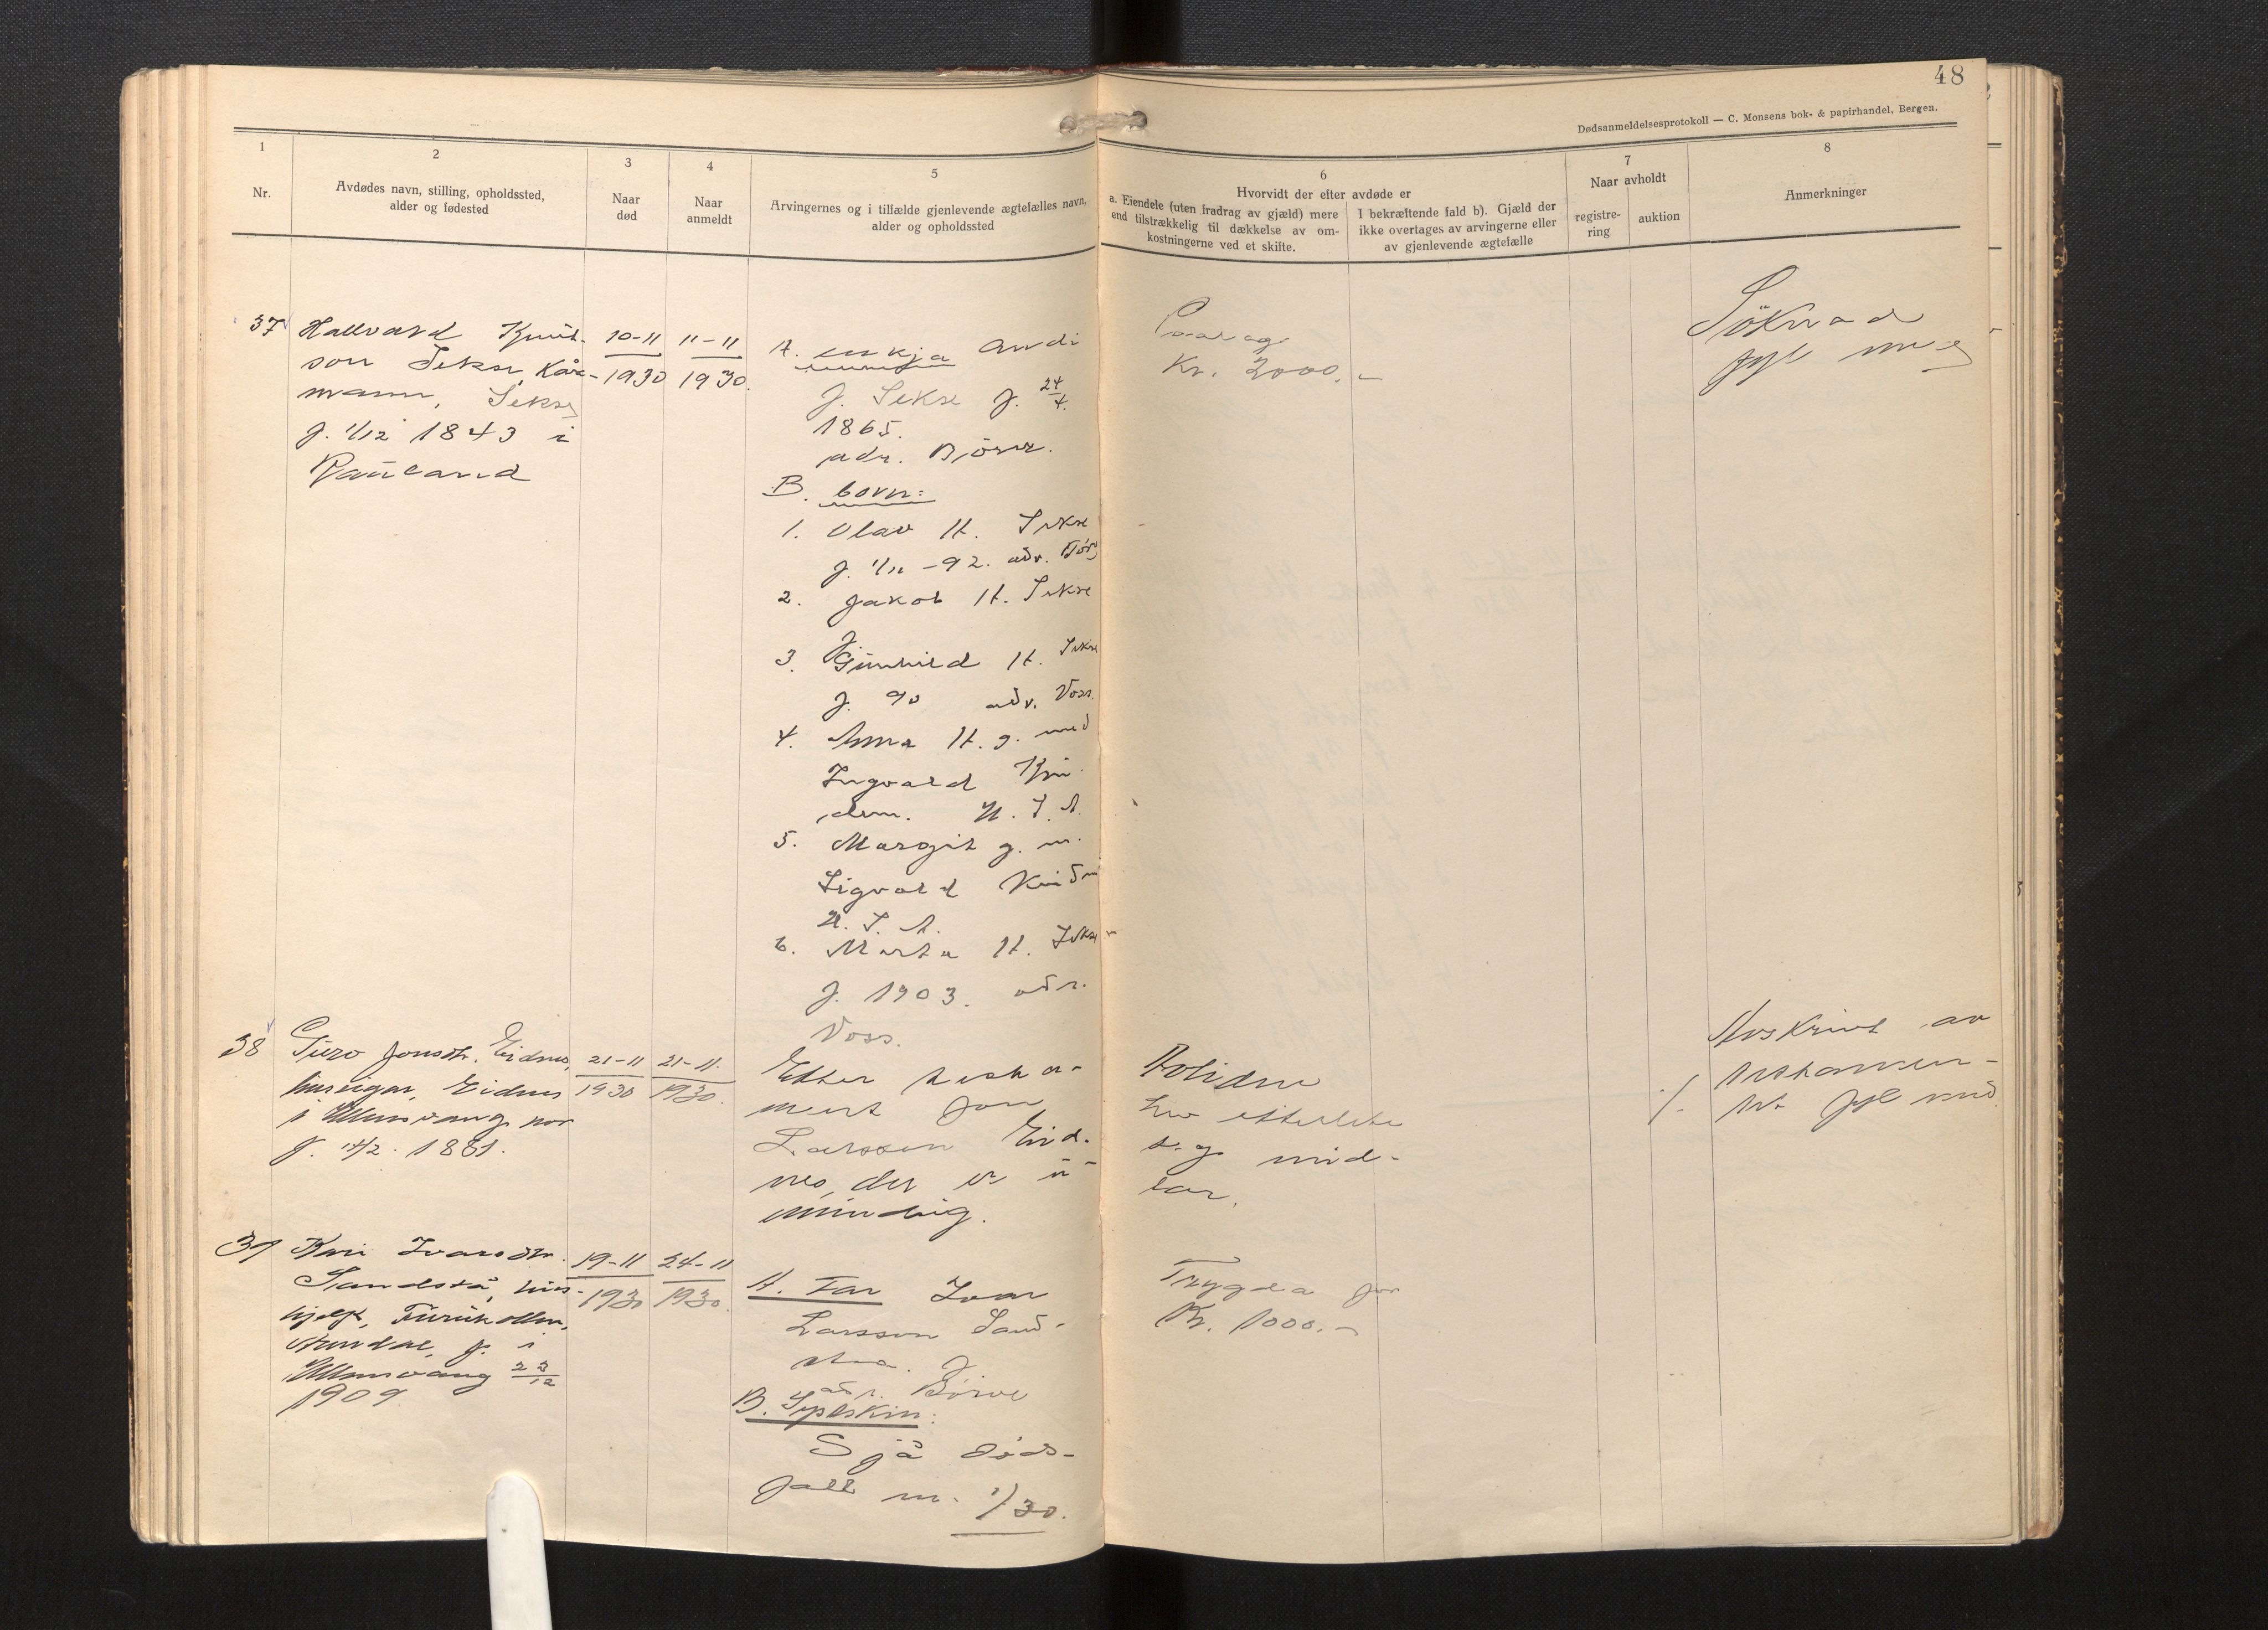 48
Dødsanmeldelsesprotokoll — C. Monsens bok- & papirhandel, Bergen.
1
Nr.
2
Avdødes navn, stilling, opholdssted,
alder og fødested
3
Naar
død
4
Naar
anmeldt
5
Arvingernes og i tilfælde gjenlevende ægtefælles navn,
alder og opholdssted
6
Hvorvidt der efter avdøde er
a. Eiendele (uten fradrag av gjæld) mere
end tilstrækkelig til dækkelse av om-
kostningerne ved et skifte.
I bekræftende fald b). Gjæld der
ikke overtages av arvingerne eller
av gjenlevende ægtefælle
7
Naar avholdt
registre-
ring
auktion
8
Anmerkninger
37
Hallvard Knut-
son Sekse, kår-
mann, Sekse
f. 1/12 1843 i
Rauland
10-11
1930
11-11
1930.
A. enkja
J. Sekse f. 24/4.
1865.
adr. Börve.
B. born:
1. Olav H. Sekse
f. 1/11 -92. adr.
2. Jakob H. Sekse
f.
3. Gunhild H. Sekse
f. 90 adr. Voss.
4. Anna H. g. med
Ingvald
U. S. A.
5. Margit g. m.
Sigvald
U. S. A.
6. Marta H. Sekse
f. 1903. adr.
Voss.
Kr. 2000.-
Söknad
fylgde
38
Guro Jonsdtr. Eidnes,
huseigar, Eidnes
i Ullensvang
f. 1881.
21-11
1930
21-11.
1930.
Etter testa-
ment Jon
Larsson Eid-
nes, der er u-
mündig.
let etterlate
seg mid-
lar.
Avskrivt av
testamen-
tet fylgde med.
39
Kari Ivarsdtr.
Sandstå, hus-
hjelp,
Arendal, f. i
Ullensvang 23/12
1909
19-11
1930
24-11
1930.
A. Far Ivar
Larsson Sand-
staa. f.
adr. Börve
B. Sysken:
Sjå döds-
fall nr. 1/30.
Trygda for
Kr. 1000.-